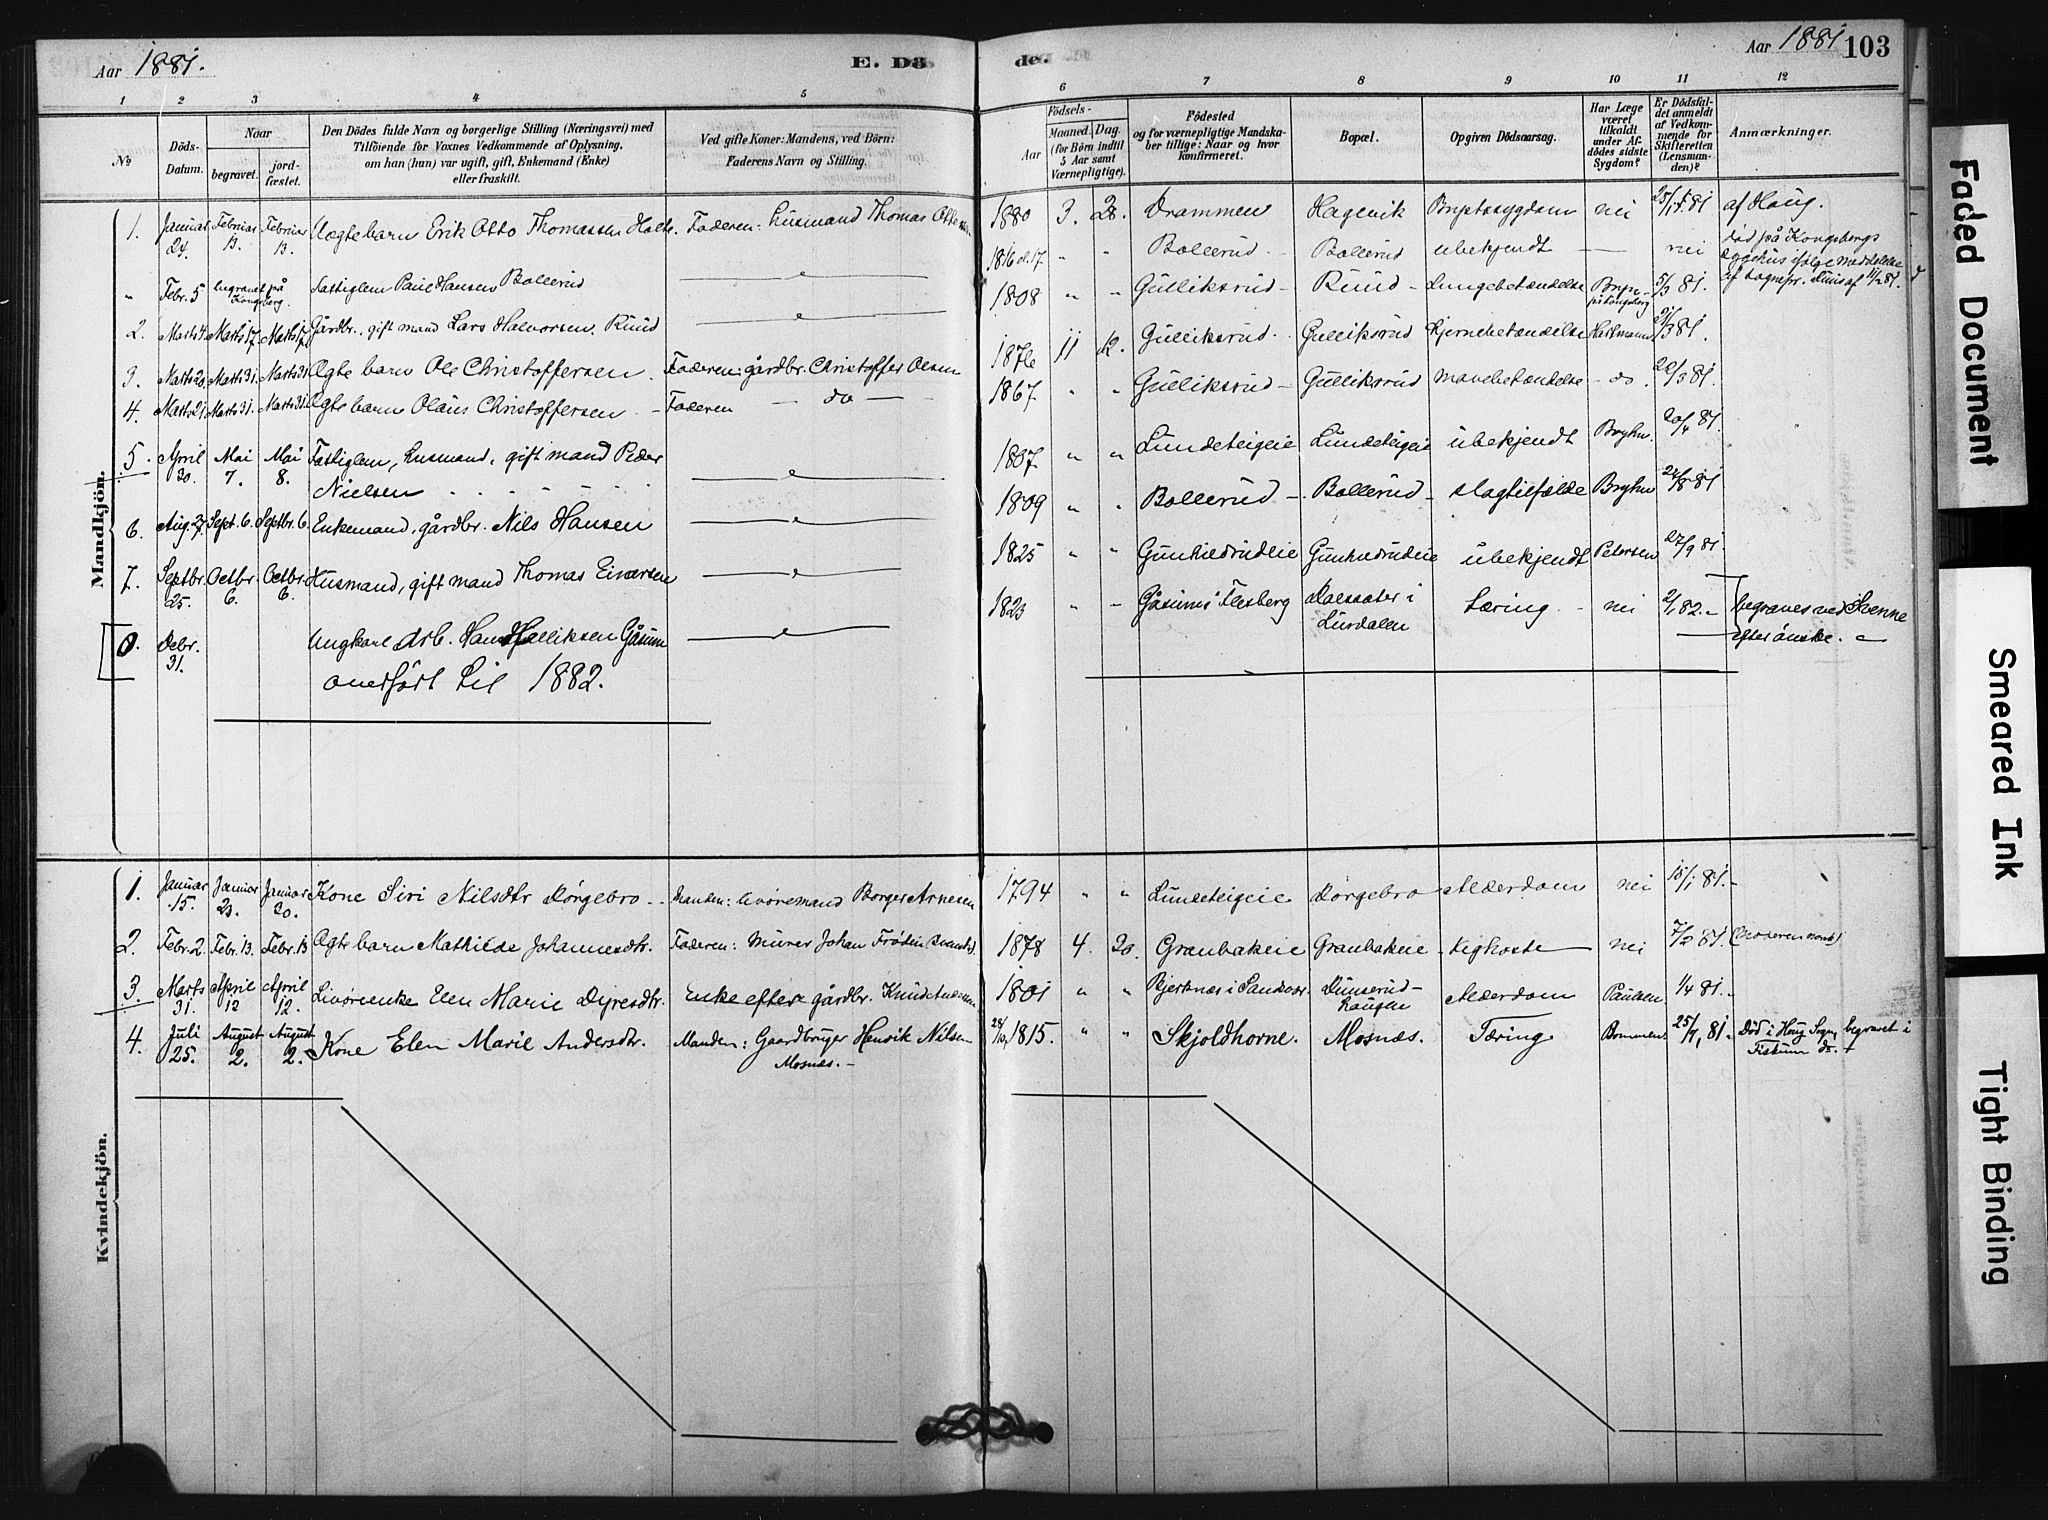 Aar 1881.
E. Dö
de.
Aar 1881
103
1 2 3 4 5
6 7 8 9 10 11 12
No
Döds-
Datum.
Naar
begravet.
jord-
fæstet.
Den Dödes fulde Navn og borgerlige Stilling (Næringsvei) med
Tilföiende for Voxnes Vedkommende af Oplysning,
om han (hun) var ugift, gift, Enkemand (Enke)
eller fraskilt.
Ved gifte Koner: Mandens, ved Börn:
Faderens Navn og Stilling.
Födsels-
Aar
Maaned. Dag.
(for Börn indtil
5 Aar samt
Værnepligtige).
Födested
og for værnepligtige Mandska-
ber tillige: Naar og hvor
konfirmeret.
Bopæl.
Opgiven Dödsaarsag.
Har Læge
været
tilkaldt
under Af-
dödes sidste
Sygdom?
Er Dödsfal-
det anmeldt
af Vedkom-
mende for
Skifteretten
(Lensman-
den)?
Anmærkninger.
Mandkjön.
1. Januar 24. Februar 13. Februar 13. Uægte barn Erik Otto Thomassen Holte. Faderen: husmand Thomas Ottesen 1880 3. 28. Drammen Hagevik Brystsygdom nei 25/1 81 af Haug.
" Febr. 5 begravet på Kongsberg. Fattiglem Paul Hansen Bollerud 1816 el. 17 " " Bollerud Bollerud ubekjendt — nei død på Kongsbergs
sygehus ifølge meddelelse
af sognepr.
2. Marts 4. Marts 17. Marts 17. Gårdbr. gift mand Lars Halvorsen Ruud 1808 " " Gulliksrud Ruud Lungebetændelse på Kongsberg 5/3 81.
3. Marts 20 Marts 31. Marts 31 Ægte barn Ole Christoffersen. Faderen: gårdbr. Christoffer Olsen 1876 11 12. Gulliksrud Gulliksrud hjernebetændelse Hartmann 21/3 81.
4. Marts 21 Marts 31. Marts 31. Ægte barn Olaus Christoffersen Faderen — do — 1867 " " Gulliksrud Gulliksrud mavebetændelse — do. 22/3 81.
5. April 30. Mai 7. Mai 8. Fattiglem, husmand, gift mand Peder
Nielsen 1807 " " Lundeteigeie Lundeteigeie ubekjendt Bryhn. 20/4 81.
6. Aug. 27. Sept. 6. Septbr. 6. Enkemand, gårdbr. Nils Hansen 1809 " " Bollerud Bollerud slagtilfælde Bryhn 28/8 81
7. Septbr. 25. Octbr. 6. Octbr. 6. Husmand, gift mand Thomas Eiversen 1825 " " Gunhildrudeie Gunhildrudeie ubekjendt Petersen 27/9 81
0. Debr. 31. Ungkarl Arb. Hans Halliksen Gåsum 1823 " " Gåsum i Flesberg Dalsæter i
Lurdalen Tæring nei 2/1 82. begraves ved Svenne
efter ønske.
overført til 1882.
Kvindekjön.
1. Januar 15. Januar 23. Januar 20. Kone Siri Nilsdtr Dørgebro Manden: livøremand Borger Arnesen 1794 " " Lundeteigeie Dørgebro Alderdom nei 15/1 81.
2. Febr. 2 Febr. 13. Febr. 13 Ægte barn Mathilde Johannesdtr. Faderen: murer Johan Frødin 1878 4. 20. Granbakeie Granbakeie kighoste nei 7/2 81.
3. Marts 31. April 12 April 12. Livørenke Elen Marie Dyresdtr. Enke efter gårdbr. Knud Andersen 1801 " " Bjerknæs i Sandsvær Dunserud-
haugen Alderdom Paulsen 1/4 81.
4. Juli 25. August 2. August 2. Kone Elen Marie Andersdtr. Manden: Gaardbruger Henrik Nilsen
Mosnæs. 28/10 1815. " " Skjoldhorne. Mosnæs. Tæring. 25/7, 81. Död i Houg Sogn, begravet i
Fiskum do.
Faded Document
Smeared Ink
Tight Binding